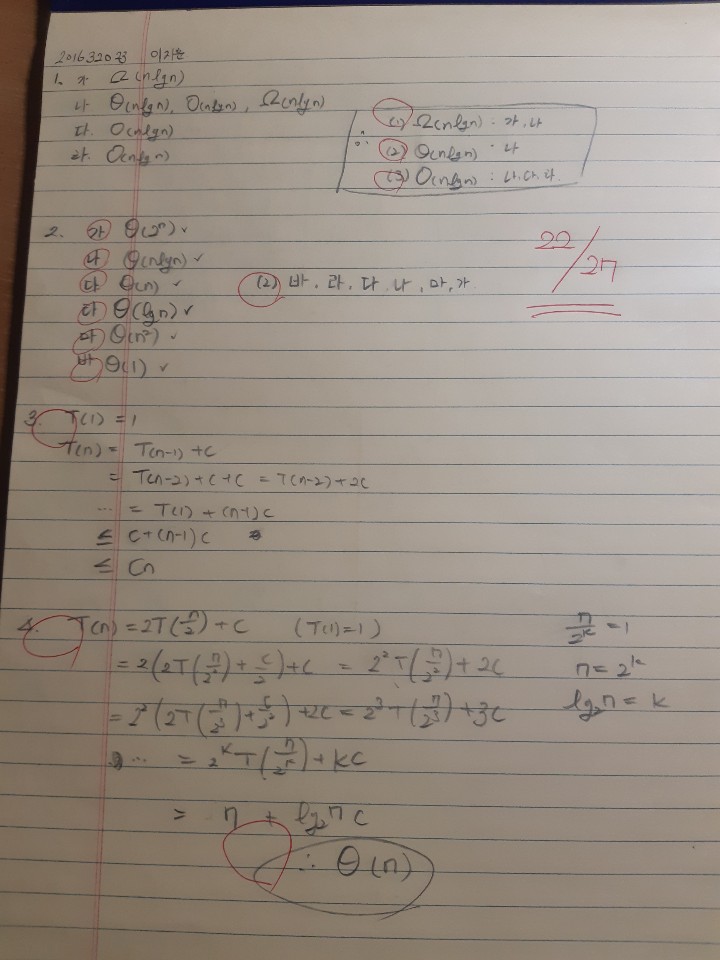 1. 가 Ω(nlgn)
나 Θ(nlgn), O(nlgn), Ω(nlgn)
다. O(nlgn)
라. O(nlgn)
∴ (1) Ω(nlgn) : 가, 나
(2) Θ(nlgn) : 나
(3) O(nlgn) : 나, 다, 라.
22/27
2. 가 Θ(2ⁿ) ✓
나 Θ(nlgn) ✓
다 Θ(n) ✓
라 Θ(lgn) ✓
마 Θ(n²) ✓
바 Θ(1) ✓
(2) 바, 라, 다, 나, 마, 가
3. T(1) = 1
T(n) = T(n-1) + C
= T(n-2) + C + C = T(n-2) + 2C
... = T(1) + (n-1)C
≤ C + (n-1)C
≤ Cn
4. T(n) = 2T(n/2) + C (T(1) = 1)
= 2(2T(n/2²) + C/2) + C = 2²T(n/2²) + 2C
= 2²(2T(n/2³) + C/2²) + 2C = 2³T(n/2³) + 3C
... = 2ᵏT(n/2ᵏ) + kC
= n + lg₂n C
∴ Θ(n)
n/2ᵏ = 1
n = 2ᵏ
lg₂n = k